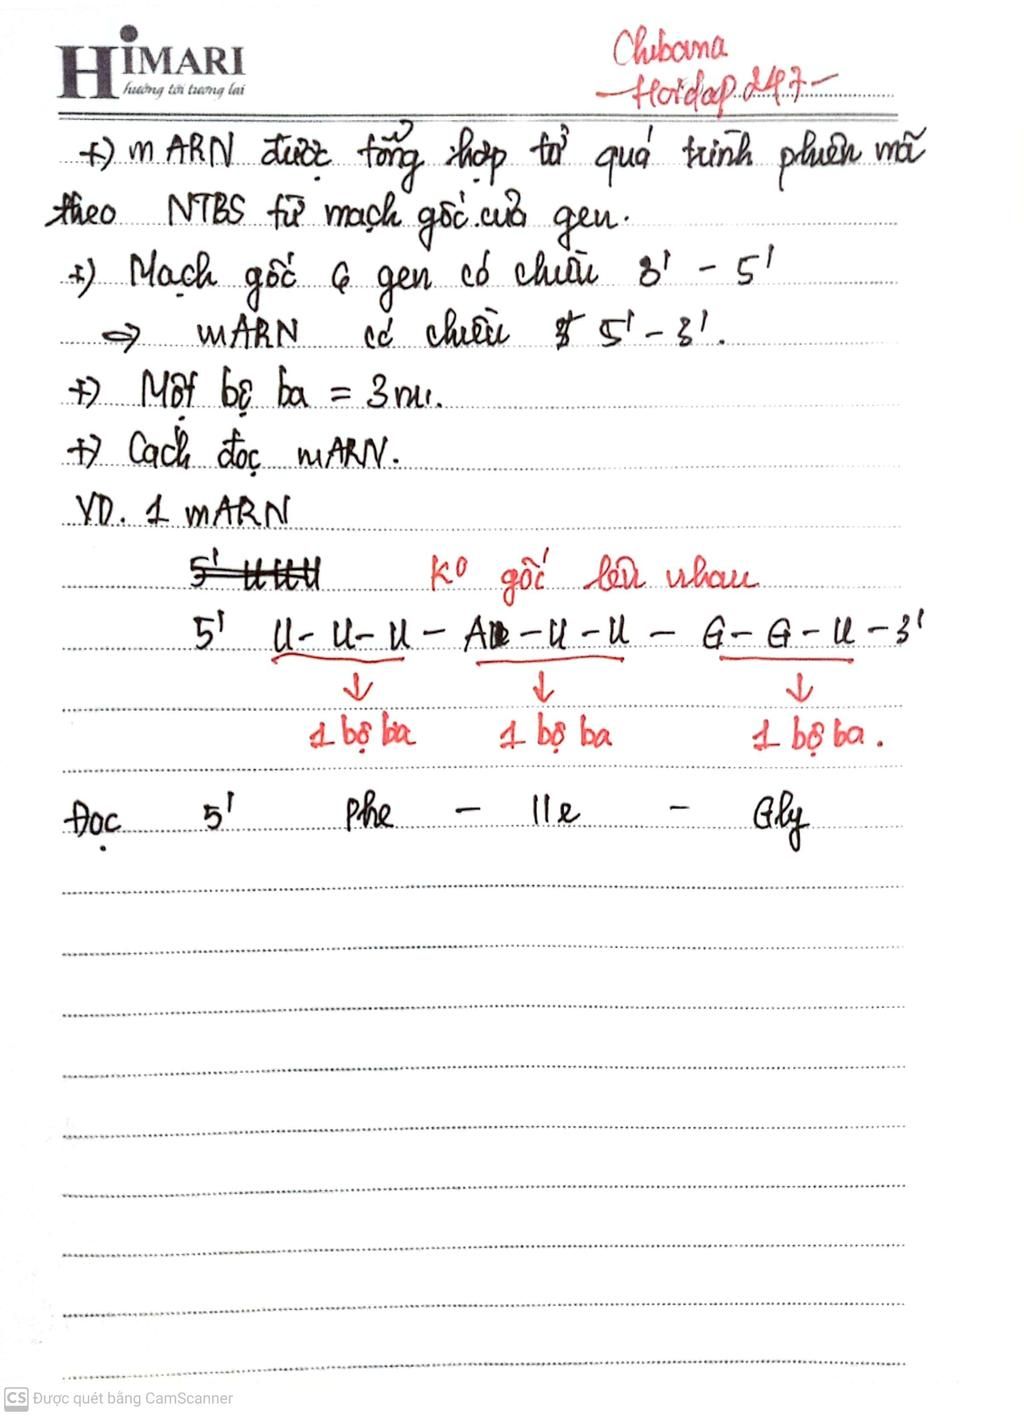 HIMARI
hướng tới tương lai
Chibana
- Hoidap 247 -
+) mARN được tổng hợp từ quá trình phiên mã
theo NTBS từ mạch gốc của gen.
+) Mạch gốc ở gen có chiều 3' - 5'
=> mARN có chiều 5' - 3'.
+) Một bộ ba = 3 nu.
+) Cách đọc mARN.
VD. 1 mARN
5' UUU
Ko gối lên nhau
5' U - U - U - A - U - U - G - G - U - 3'
↓ ↓ ↓
1 bộ ba 1 bộ ba 1 bộ ba.
Đọc 5' Phe - Ile - Gly
CS Được quét bằng CamScanner